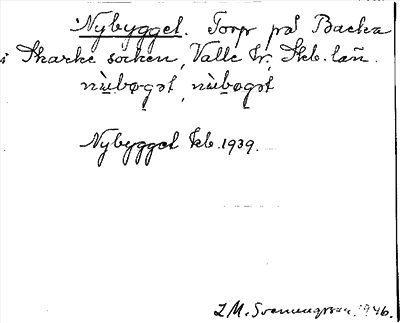 Nybygget. Torp på Backa
i Skarke socken, Valle hr, Skb. län.
nùbogət, nùbogət
Nybygget kb. 1939.
Z.M. Svenungsson. 1946.